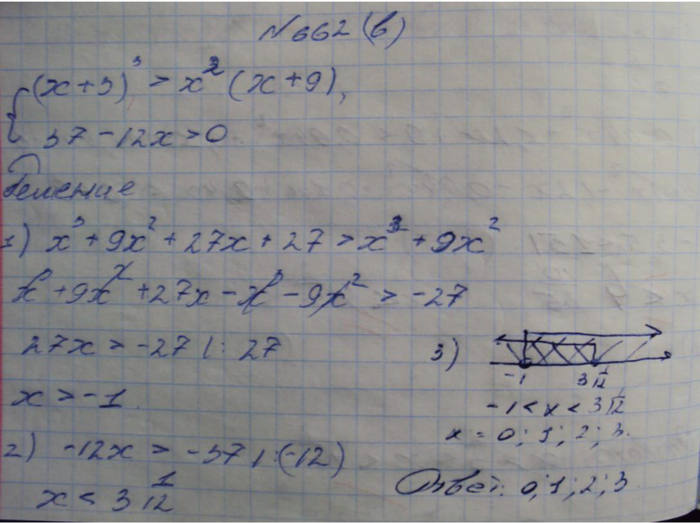 №662 (в)
(x+3)³ > x² (x+9),
37 – 12x > 0
Решение
1) x³ + 9x² + 27x + 27 > x³ + 9x²
x³ + 9x² + 27x – x³ – 9x² > -27
27x > -27 |: 27
x > -1
2) -12x > -37 |: (-12)
x < 3 1/12
3)
-1 3 1/12
-1 < x < 3 1/12
x = 0; 1; 2; 3.
Ответ: 0; 1; 2; 3